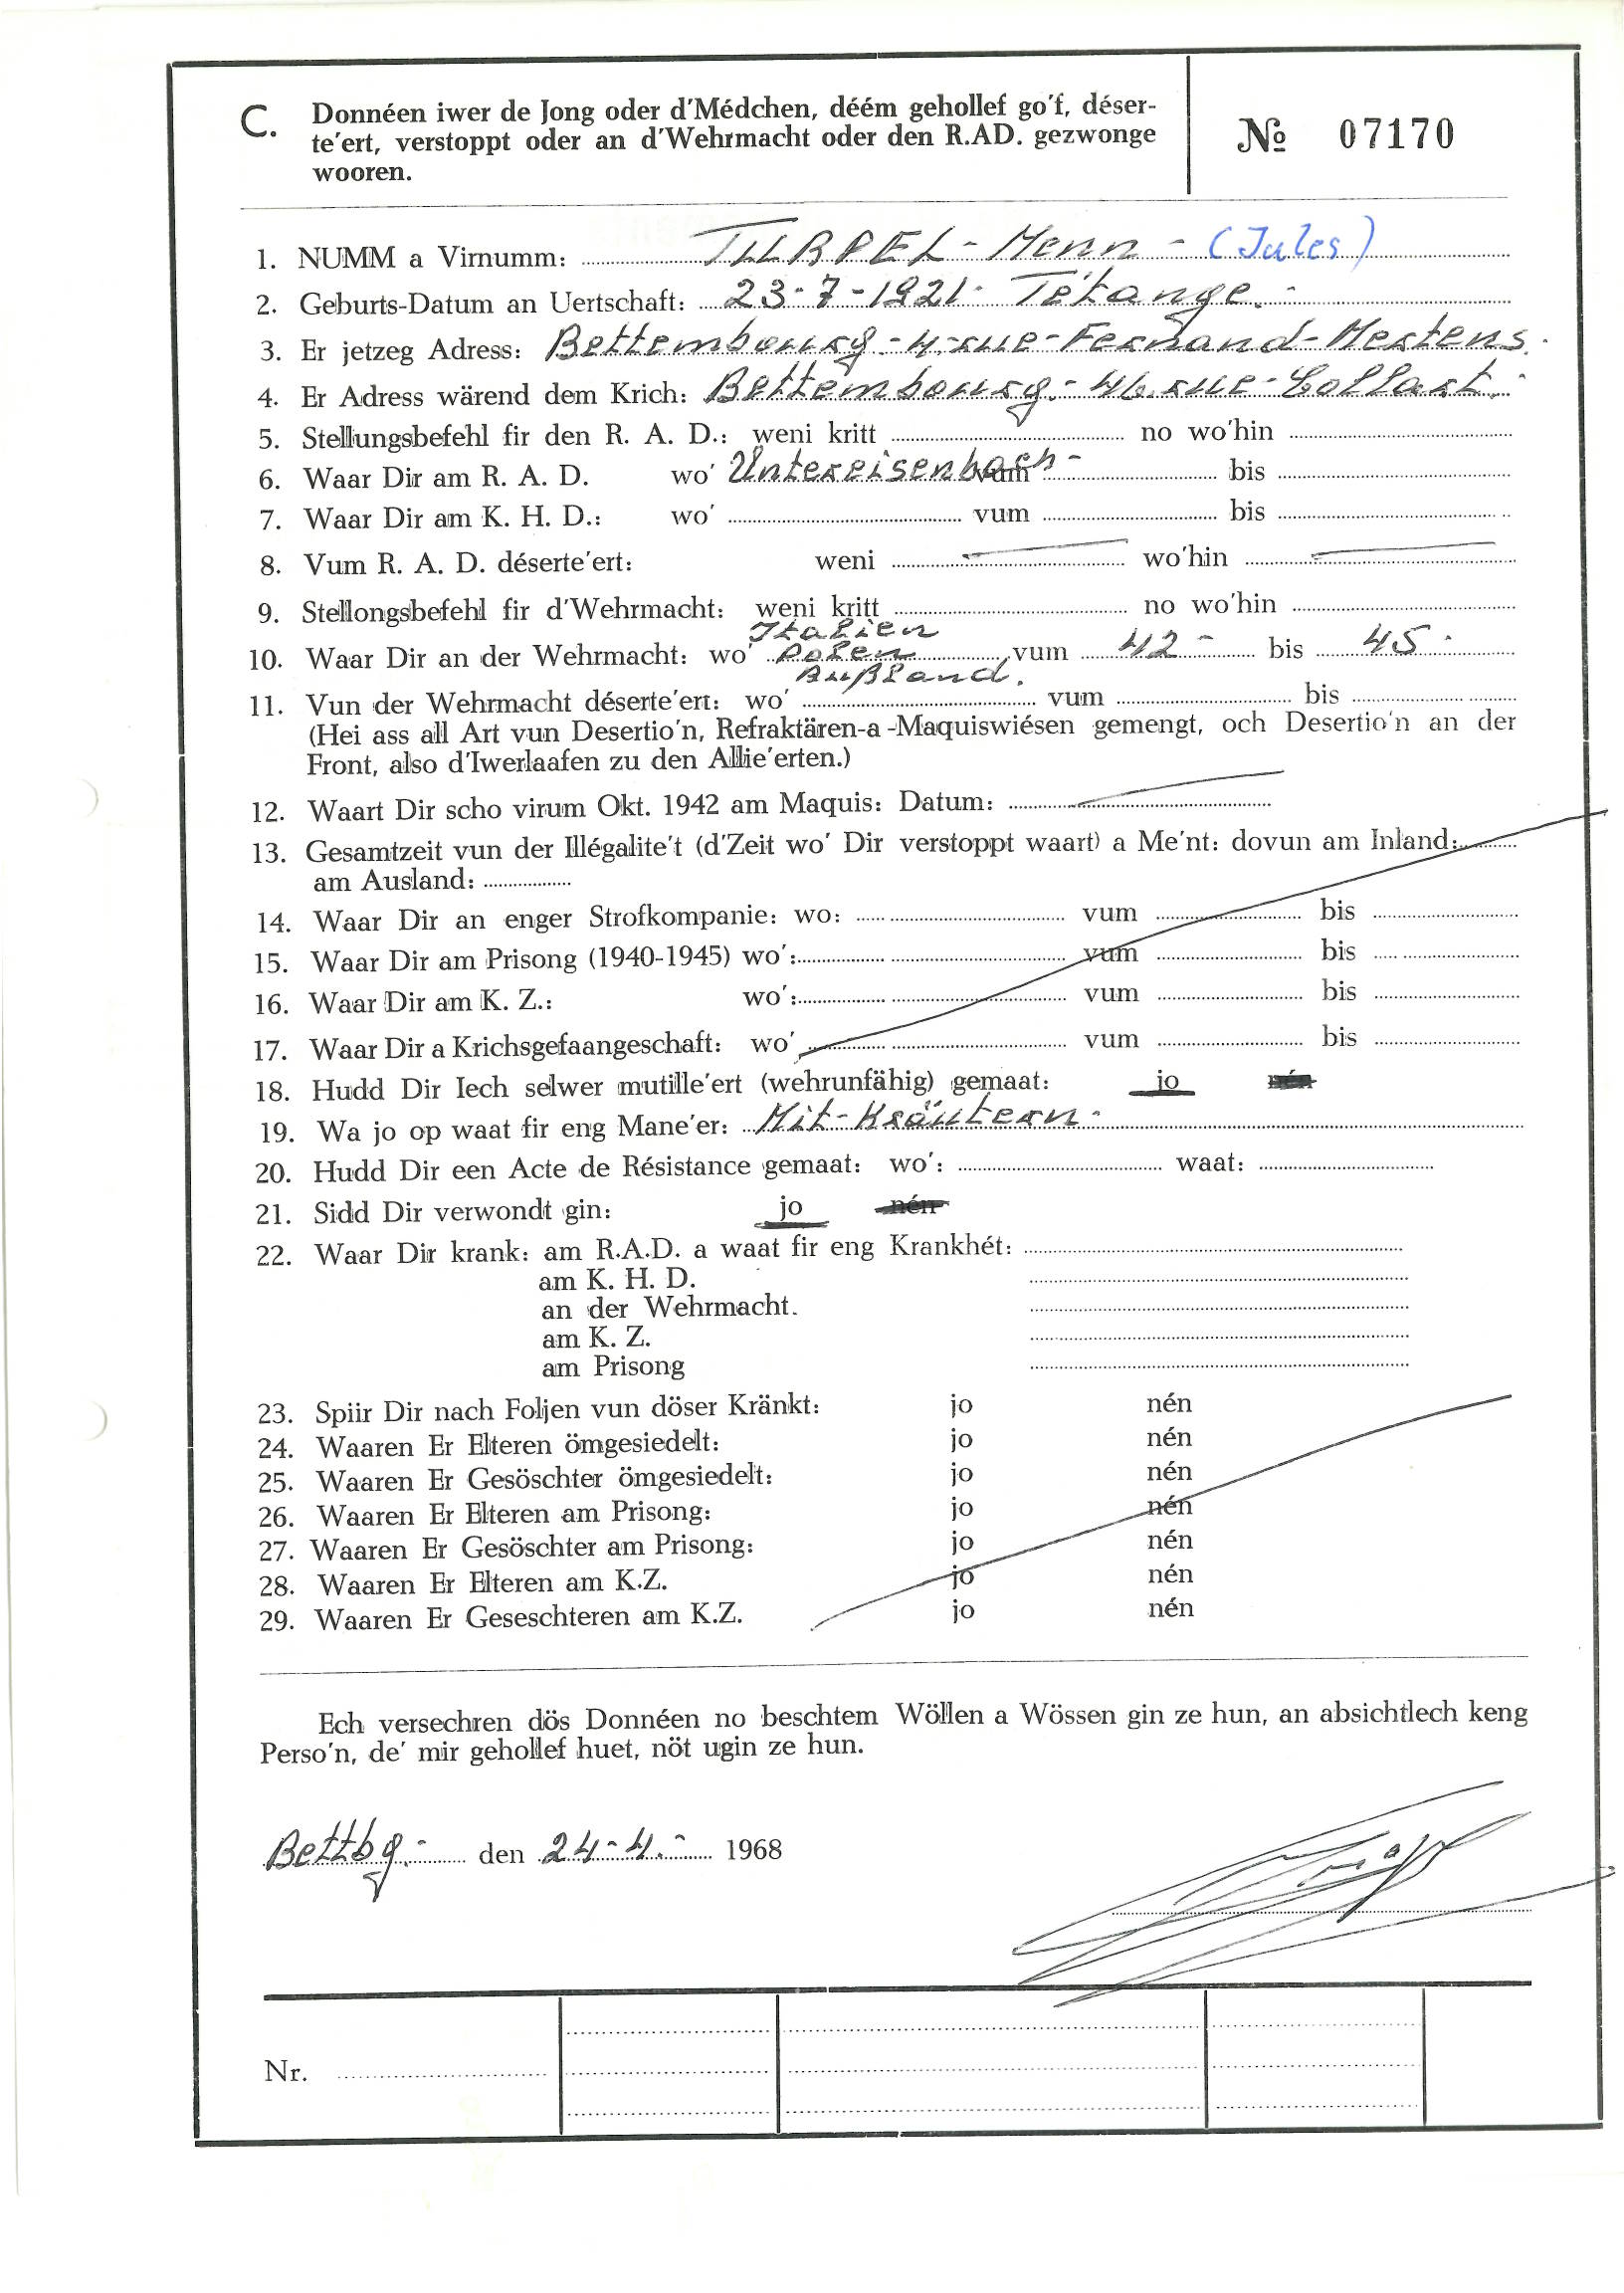 C. Donnéen iwer de Jong oder d'Médchen, déém gehollef go'f, déser-
te'ert, verstoppt oder an d'Wehrmacht oder den R.AD. gezwonge
wooren.
№ 07170
1. NUMM a Virnumm: TURPEL - Menn - (Jules)
2. Geburts-Datum an Uertschaft: 23-7-1921- Tétange.-
3. Er jetzeg Adress: Bettembourg.-4.rue-Fernand-Mertens.-
4. Er Adress wärend dem Krich: Bettembourg.-46.rue-Collart.-
5. Stellungsbefehl fir den R. A. D.: weni kritt no wo'hin
6. Waar Dir am R. A. D. wo' Untereisenbach- vum bis
7. Waar Dir am K. H. D.: wo' vum bis
8. Vum R. A. D. déserte'ert: weni wo'hin
9. Stellongsbefehl fir d'Wehrmacht: weni kritt no wo'hin
Italien
10. Waar Dir an der Wehrmacht: wo' Polen vum 42- bis 45-
Rußland.
11. Vun der Wehrmacht déserte'ert: wo' vum bis
(Hei ass all Art vun Desertio'n, Refraktären-a-Maquiswiésen gemengt, och Desertio'n an der
Front, also d'Iwerlaafen zu den Allie'erten.)
12. Waart Dir scho virum Okt. 1942 am Maquis: Datum:
13. Gesamtzeit vun der Illégalite't (d'Zeit wo' Dir verstoppt waart) a Me'nt: dovun am Inland:
am Ausland:
14. Waar Dir an enger Strofkompanie: wo: vum bis
15. Waar Dir am Prisong (1940-1945) wo': vum bis
16. Waar Dir am K. Z.: wo': vum bis
17. Waar Dir a Krichsgefaangeschaft: wo' vum bis
18. Hudd Dir Iech selwer mutille'ert (wehrunfähig) gemaat: jo nén
19. Wa jo op waat fir eng Mane'er: Mit-Kräutern-
20. Hudd Dir een Acte de Résistance gemaat: wo': waat:
21. Sidd Dir verwondt gin: jo nén
22. Waar Dir krank: am R.A.D. a waat fir eng Krankhét:
am K. H. D.
an der Wehrmacht.
am K. Z.
am Prisong
23. Spiir Dir nach Foljen vun döser Kränkt: jo nén
24. Waaren Er Elteren ömgesiedelt: jo nén
25. Waaren Er Gesöschter ömgesiedelt: jo nén
26. Waaren Er Elteren am Prisong: jo nén
27. Waaren Er Gesöschter am Prisong: jo nén
28. Waaren Er Elteren am K.Z. jo nén
29. Waaren Er Geseschteren am K.Z. jo nén
Ech versechren dös Donnéen no beschtem Wöllen a Wössen gin ze hun, an absichtlech keng
Perso'n, de' mir gehollef huet, nöt ugin ze hun.
Bettbg.- den 24-4.- 1968
Nr.